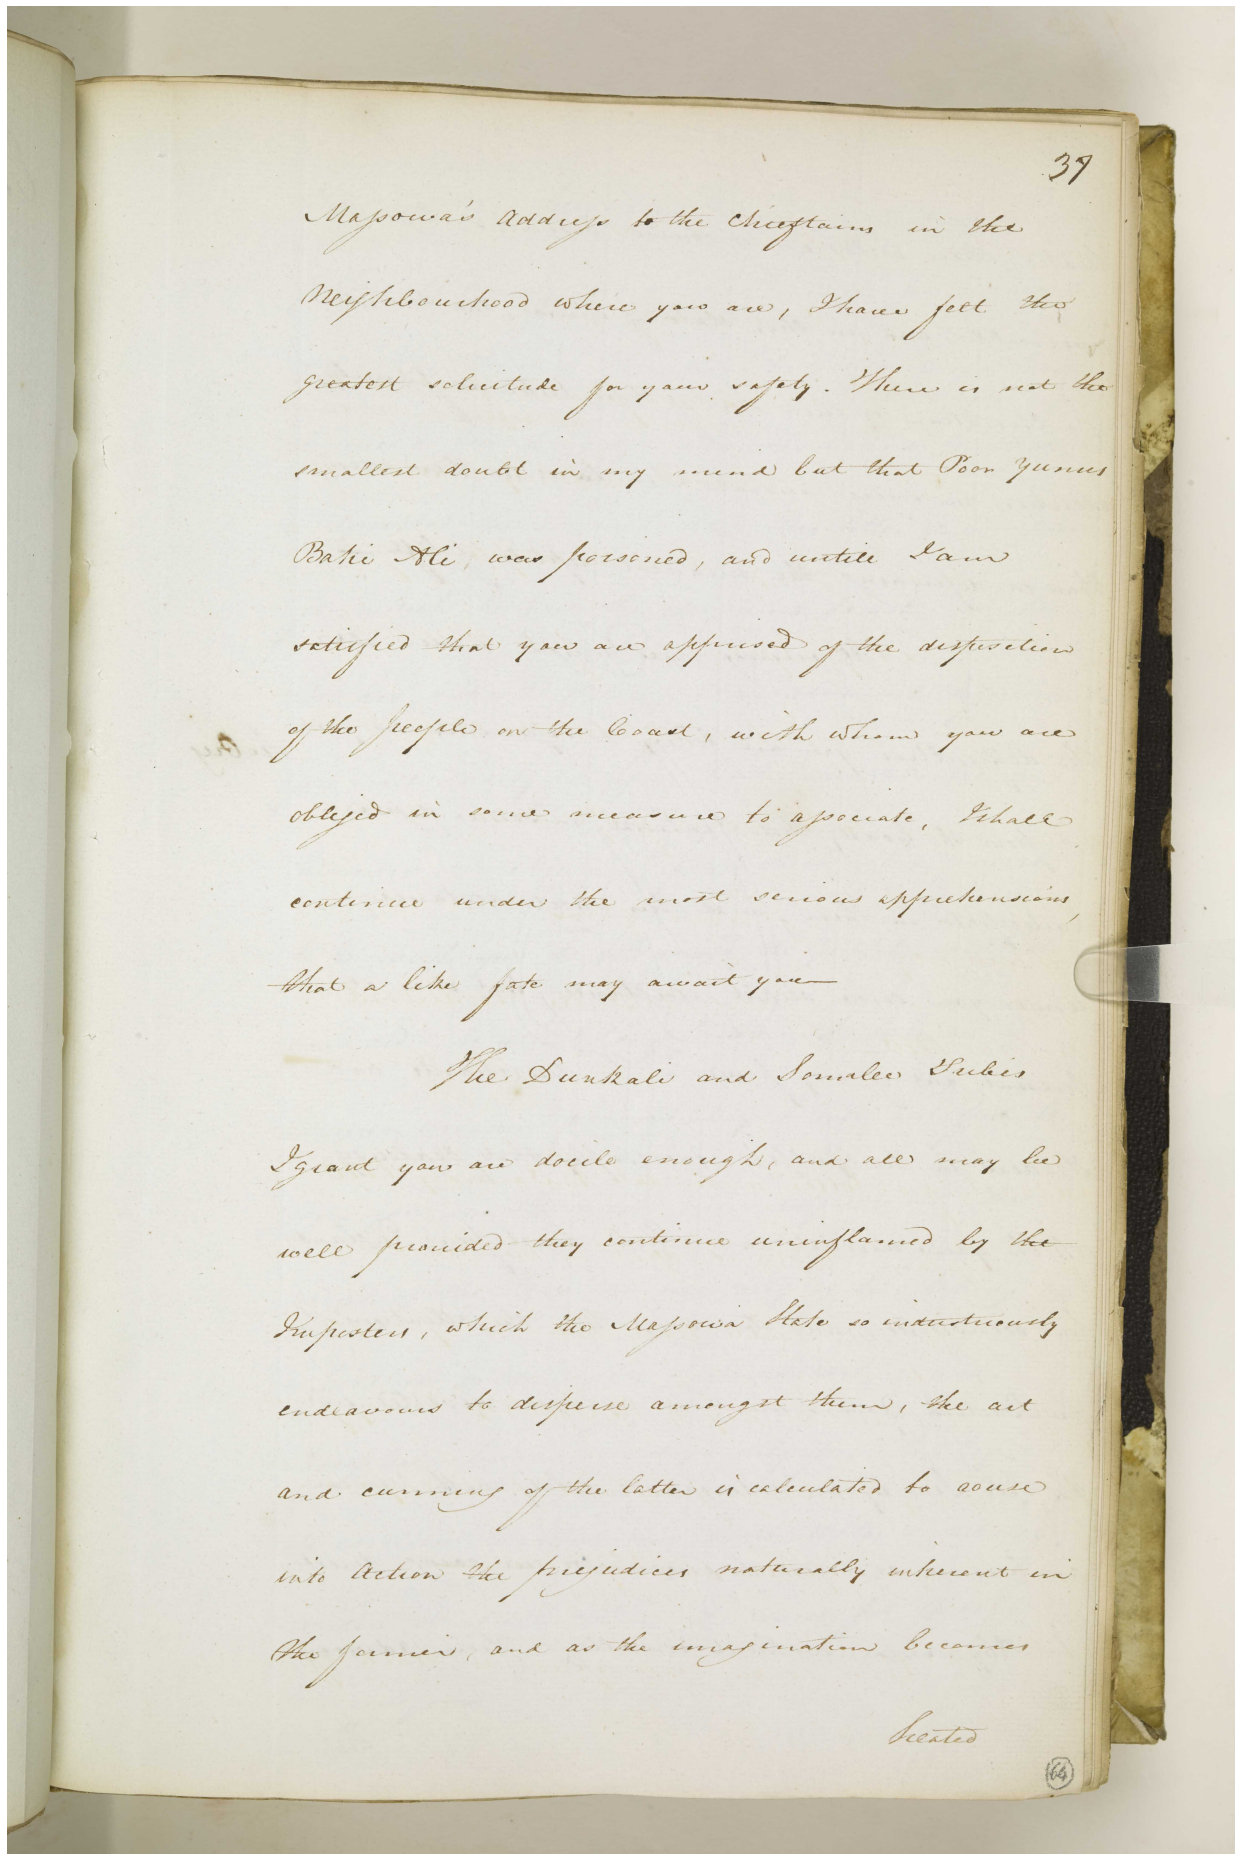 37
Massowa's Address to the Chieftains in the
Neighbourhood where you are, I have felt the
greatest solicitude for your safety. There is not the
smallest doubt in my mind but that Poor Yunus
Baki Ali, was poisoned, and untill I am
satisfied that you are apprised of the disposition
of the people on the Coast, with whom you are
obliged in some measure to associate, I shall
continue under the most serious apprehensions,
that a like fate may await you—
The Dunkali and Somalee Tribes
I grant you are docile enough, and all may be
well provided they continue uninflamed by the
Imposters, which the Massowa State so industriously
endeavours to disperse amongst them, the art
and cunning of the latter is calculated to rouse
into Action the prejudices naturally inherent in
the former, and as the imagination becomes
heated
64